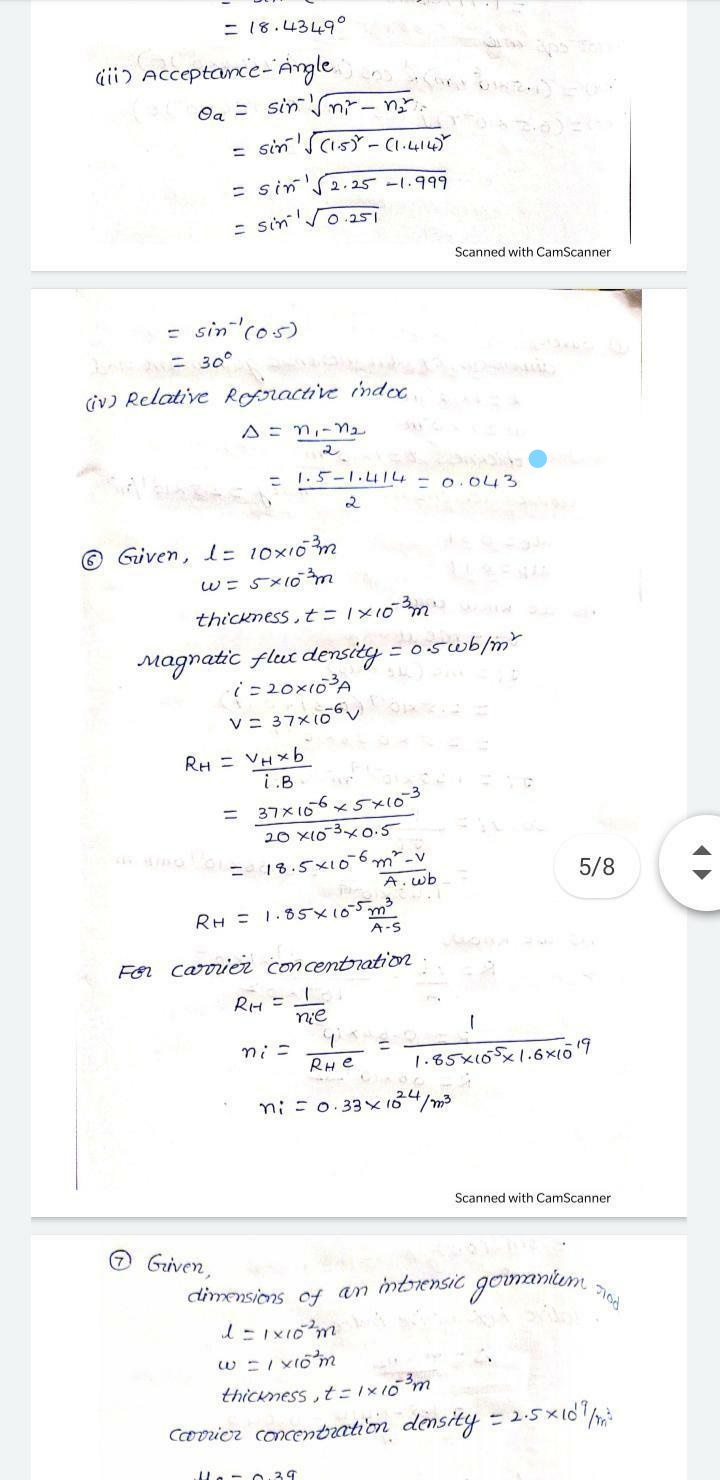 = 18.4349°
(iii) Acceptance-Angle
θa = sin⁻¹√n₁² - n₂²
= sin⁻¹√(1.5)² - (1.414)²
= sin⁻¹√2.25 - 1.999
= sin⁻¹√0.251
Scanned with CamScanner
= sin⁻¹(0.5)
= 30°
(iv) Relative Refractive index
Δ = n₁-n₂/2
= 1.5-1.414/2 = 0.043
⑥ Given, l = 10×10⁻³m
w = 5×10⁻³m
thickness, t = 1×10⁻³m
Magnatic flux density = 0.5 wb/m²
i = 20×10⁻³A
V = 37×10⁻⁶V
RH = VH×b/i.B
= 37×10⁻⁶ × 5×10⁻³/20×10⁻³×0.5
= 18.5×10⁻⁶ m²-V/A.wb
5/8
RH = 1.85×10⁻⁵ m³/A-S
For carrier concentration
RH = 1/nie
ni = 1/RH e = 1/1.85×10⁻⁵×1.6×10⁻¹⁹
ni = 0.33×10²⁴/m³
Scanned with CamScanner
⑦ Given,
dimensions of an intrensic germanium rod
l = 1×10⁻²m
w = 1×10⁻²m
thickness, t = 1×10⁻³m
Carrier concentration density = 2.5×10¹⁹/m³
= 0.39